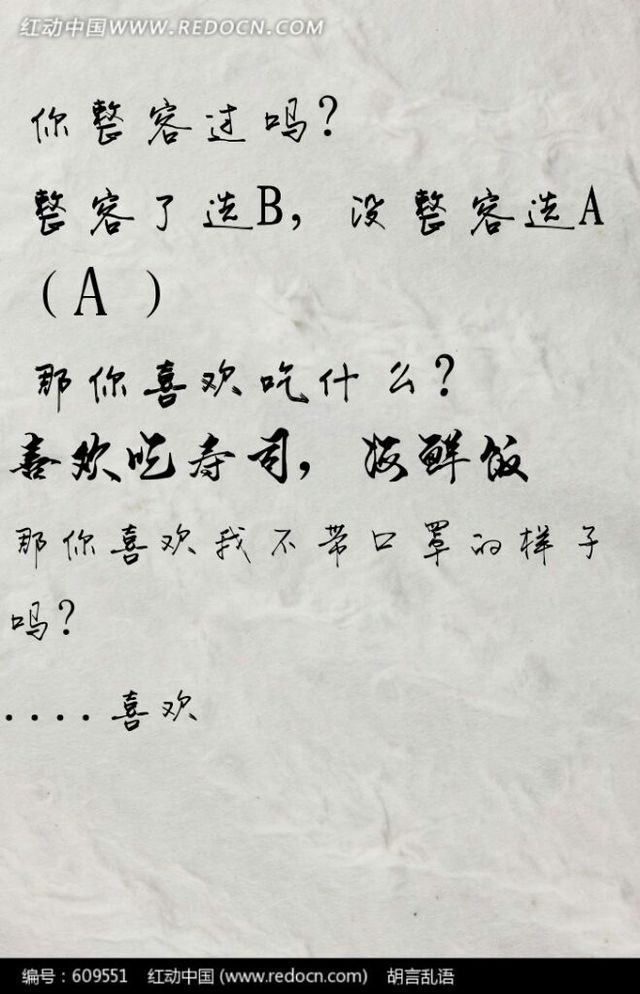 红动中国WWW.REDOCN.COM
你整容过吗?
整容了选B, 没整容选A
(A )
那你喜欢吃什么?
喜欢吃寿司, 海鲜饭
那你喜欢我不带口罩的样子
吗?
....喜欢
编号:609551 红动中国 (www.redocn.com) 胡言乱语